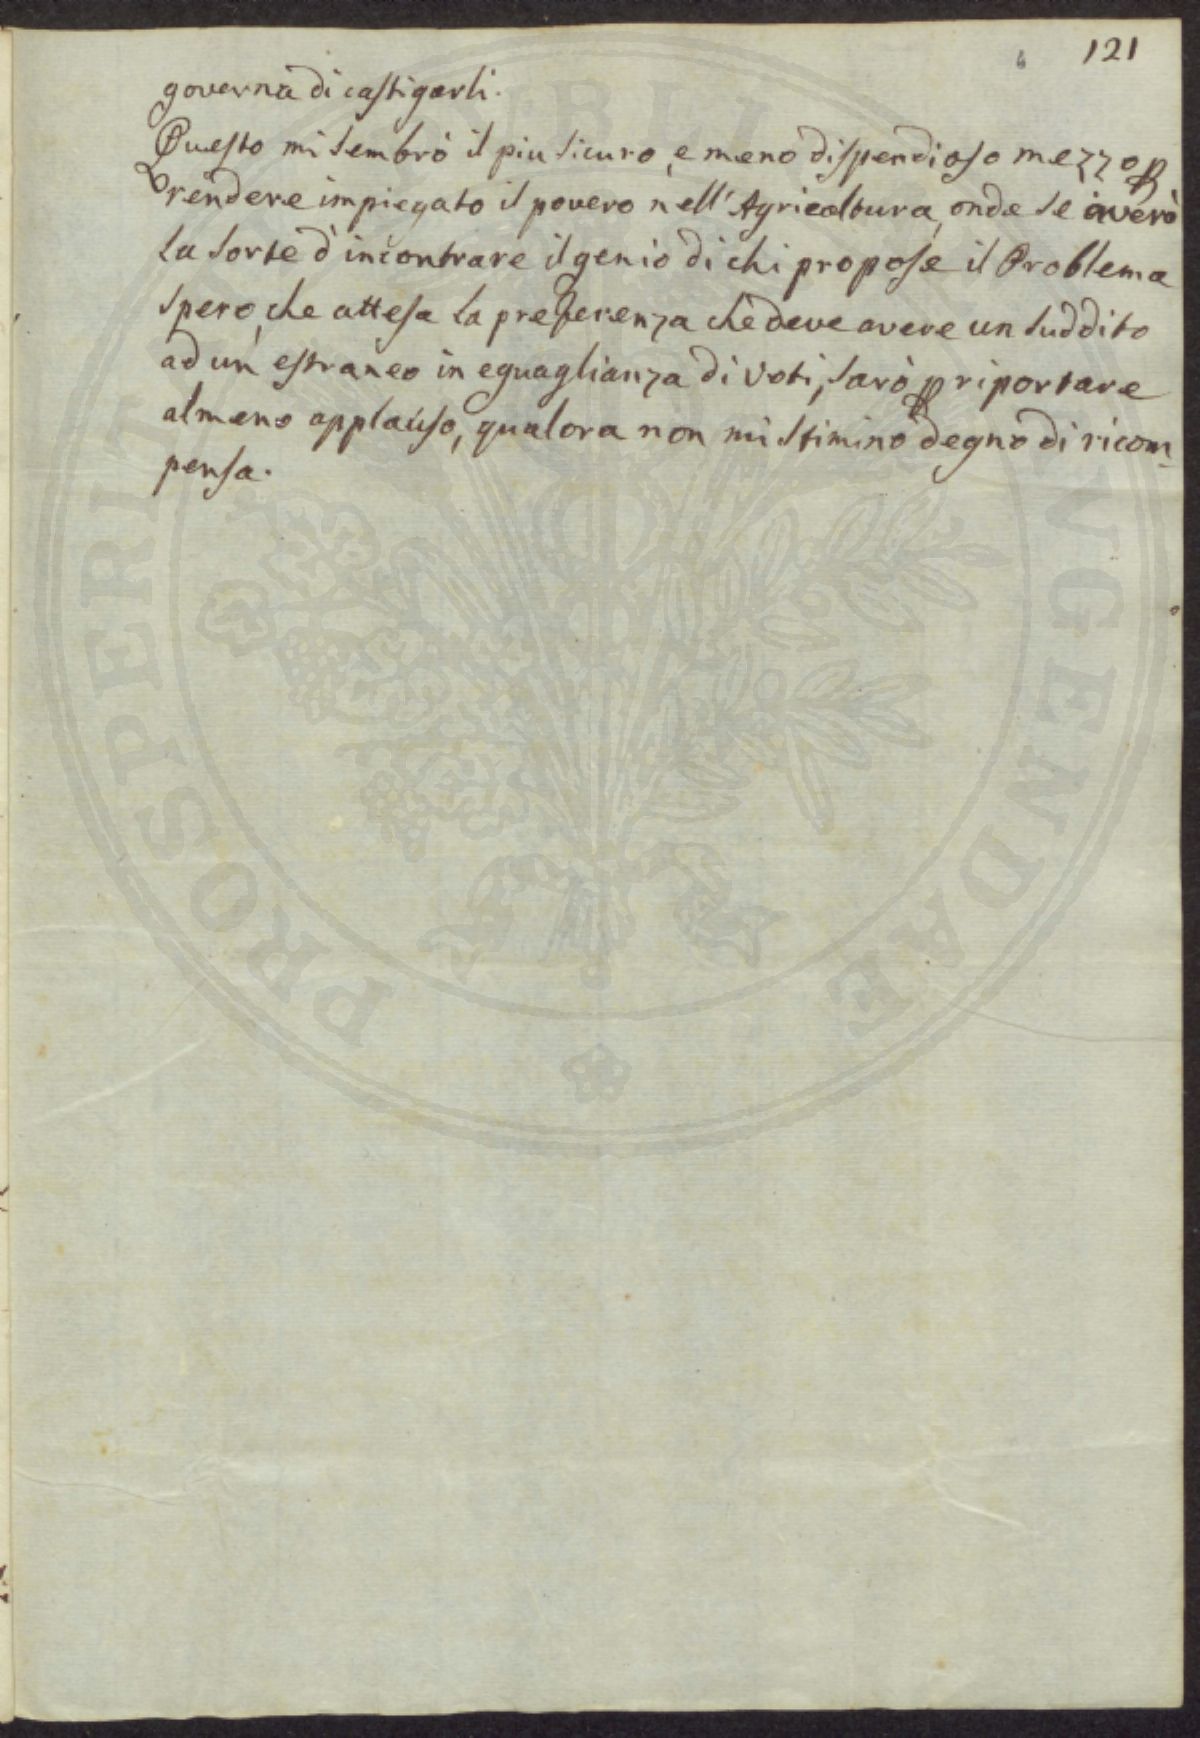 6 121
governa di castigarli.
Questo mi sembrò il piu sicuro, e meno dispendioso mezzo p
rendere impiegato il povero nell' Agricoltura, onde se averò
la sorte d' incontrare il genio di chi propose il Problema
spero, che attesa la preferenza che deve avere un suddito
ad un' estraneo in eguaglianza di voti, sarò p riportare
almeno applauso, qualora non mi stimino degno di ricom-
pensa.
PROSPERIT PUBLI AUGENDAE